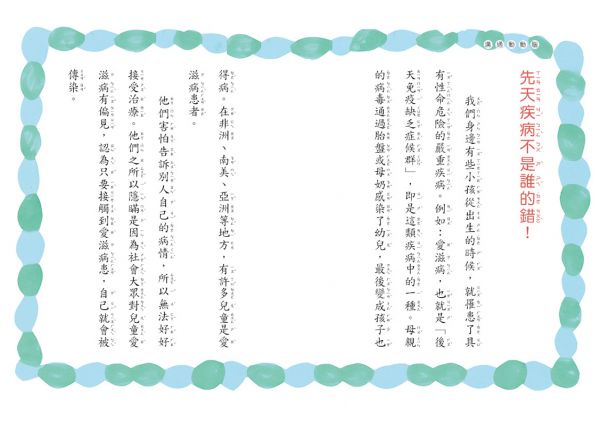 溝通動動腦
先天疾病不是誰的錯！
我們身邊有些小孩從出生的時候，就罹患了具
有性命危險的嚴重疾病。例如：愛滋病，也就是「後
天免疫缺乏症候群」，即是這類疾病中的一種。母親
的病毒通過胎盤或母奶感染了幼兒，最後變成孩子也
得病。在非洲、南美、亞洲等地方，有許多兒童是愛
滋病患者。
他們害怕告訴別人自己的病情，所以無法好好
接受治療。他們之所以隱瞞是因為社會大眾對兒童愛
滋病有偏見，認為只要接觸到愛滋病患，自己就會被
傳染。